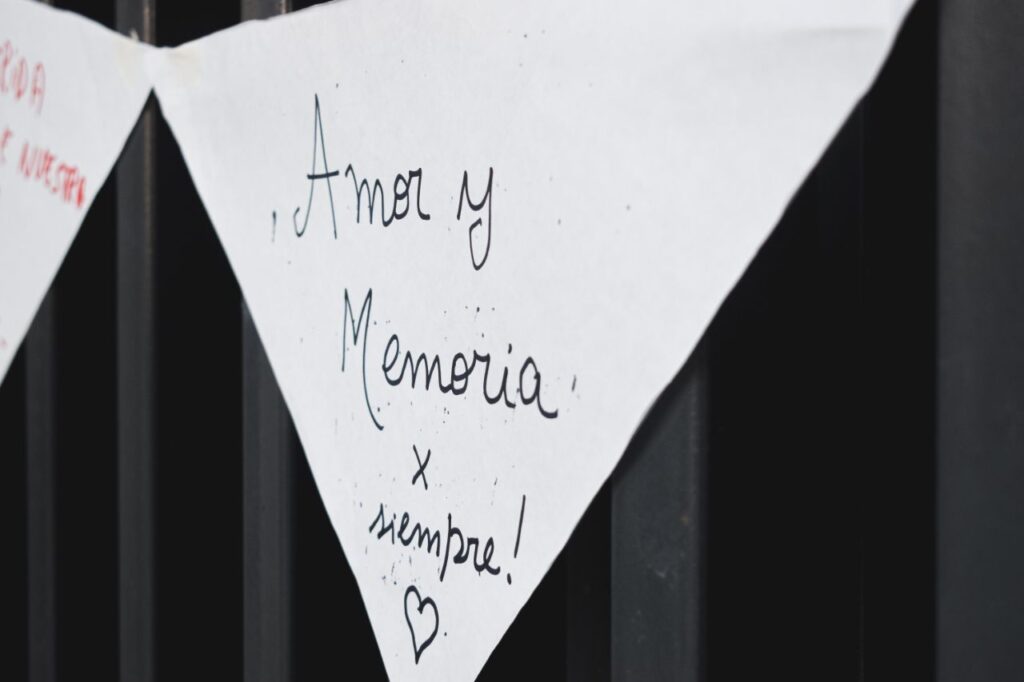 NUESTRA
Amor y
Memoria
x
siempre!